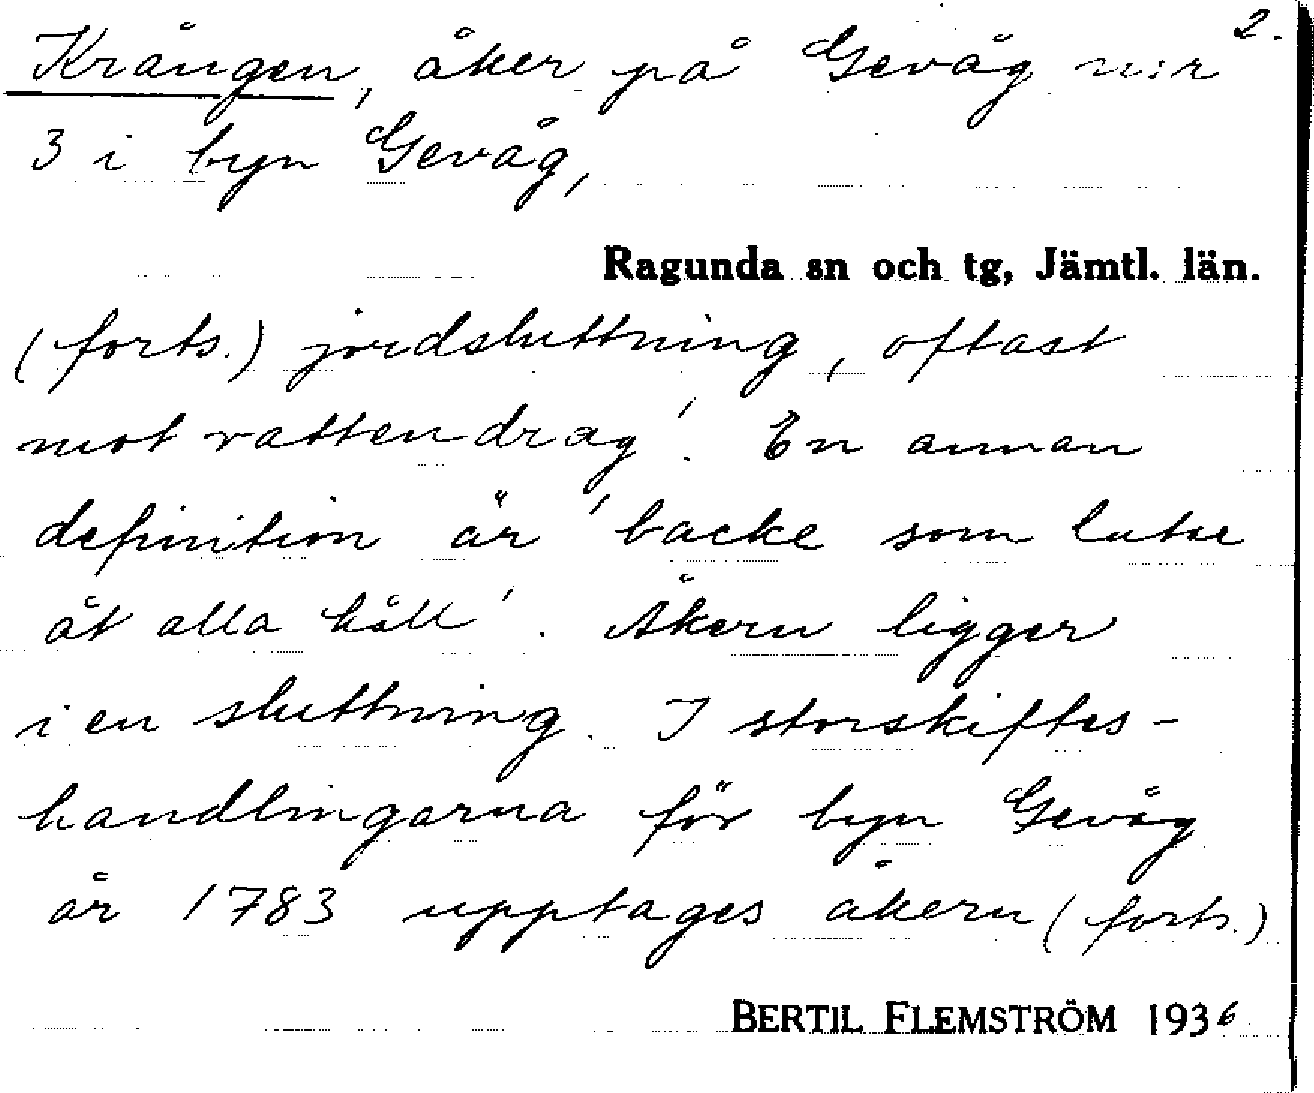 2.
Krången, åker på Gevåg n:r
3 i byn Gevåg,
Ragunda sn och tg, Jämtl. län.
(forts.) jordsluttning, oftast
mot vattendrag'. En annan
definition är 'backe som lutar
åt alla håll'. Åkern ligger
i en sluttning. I storskiftes-
handlingarna för byn Gevåg
år 1783 upptages åkern (forts.)
BERTIL FLEMSTRÖM 1936